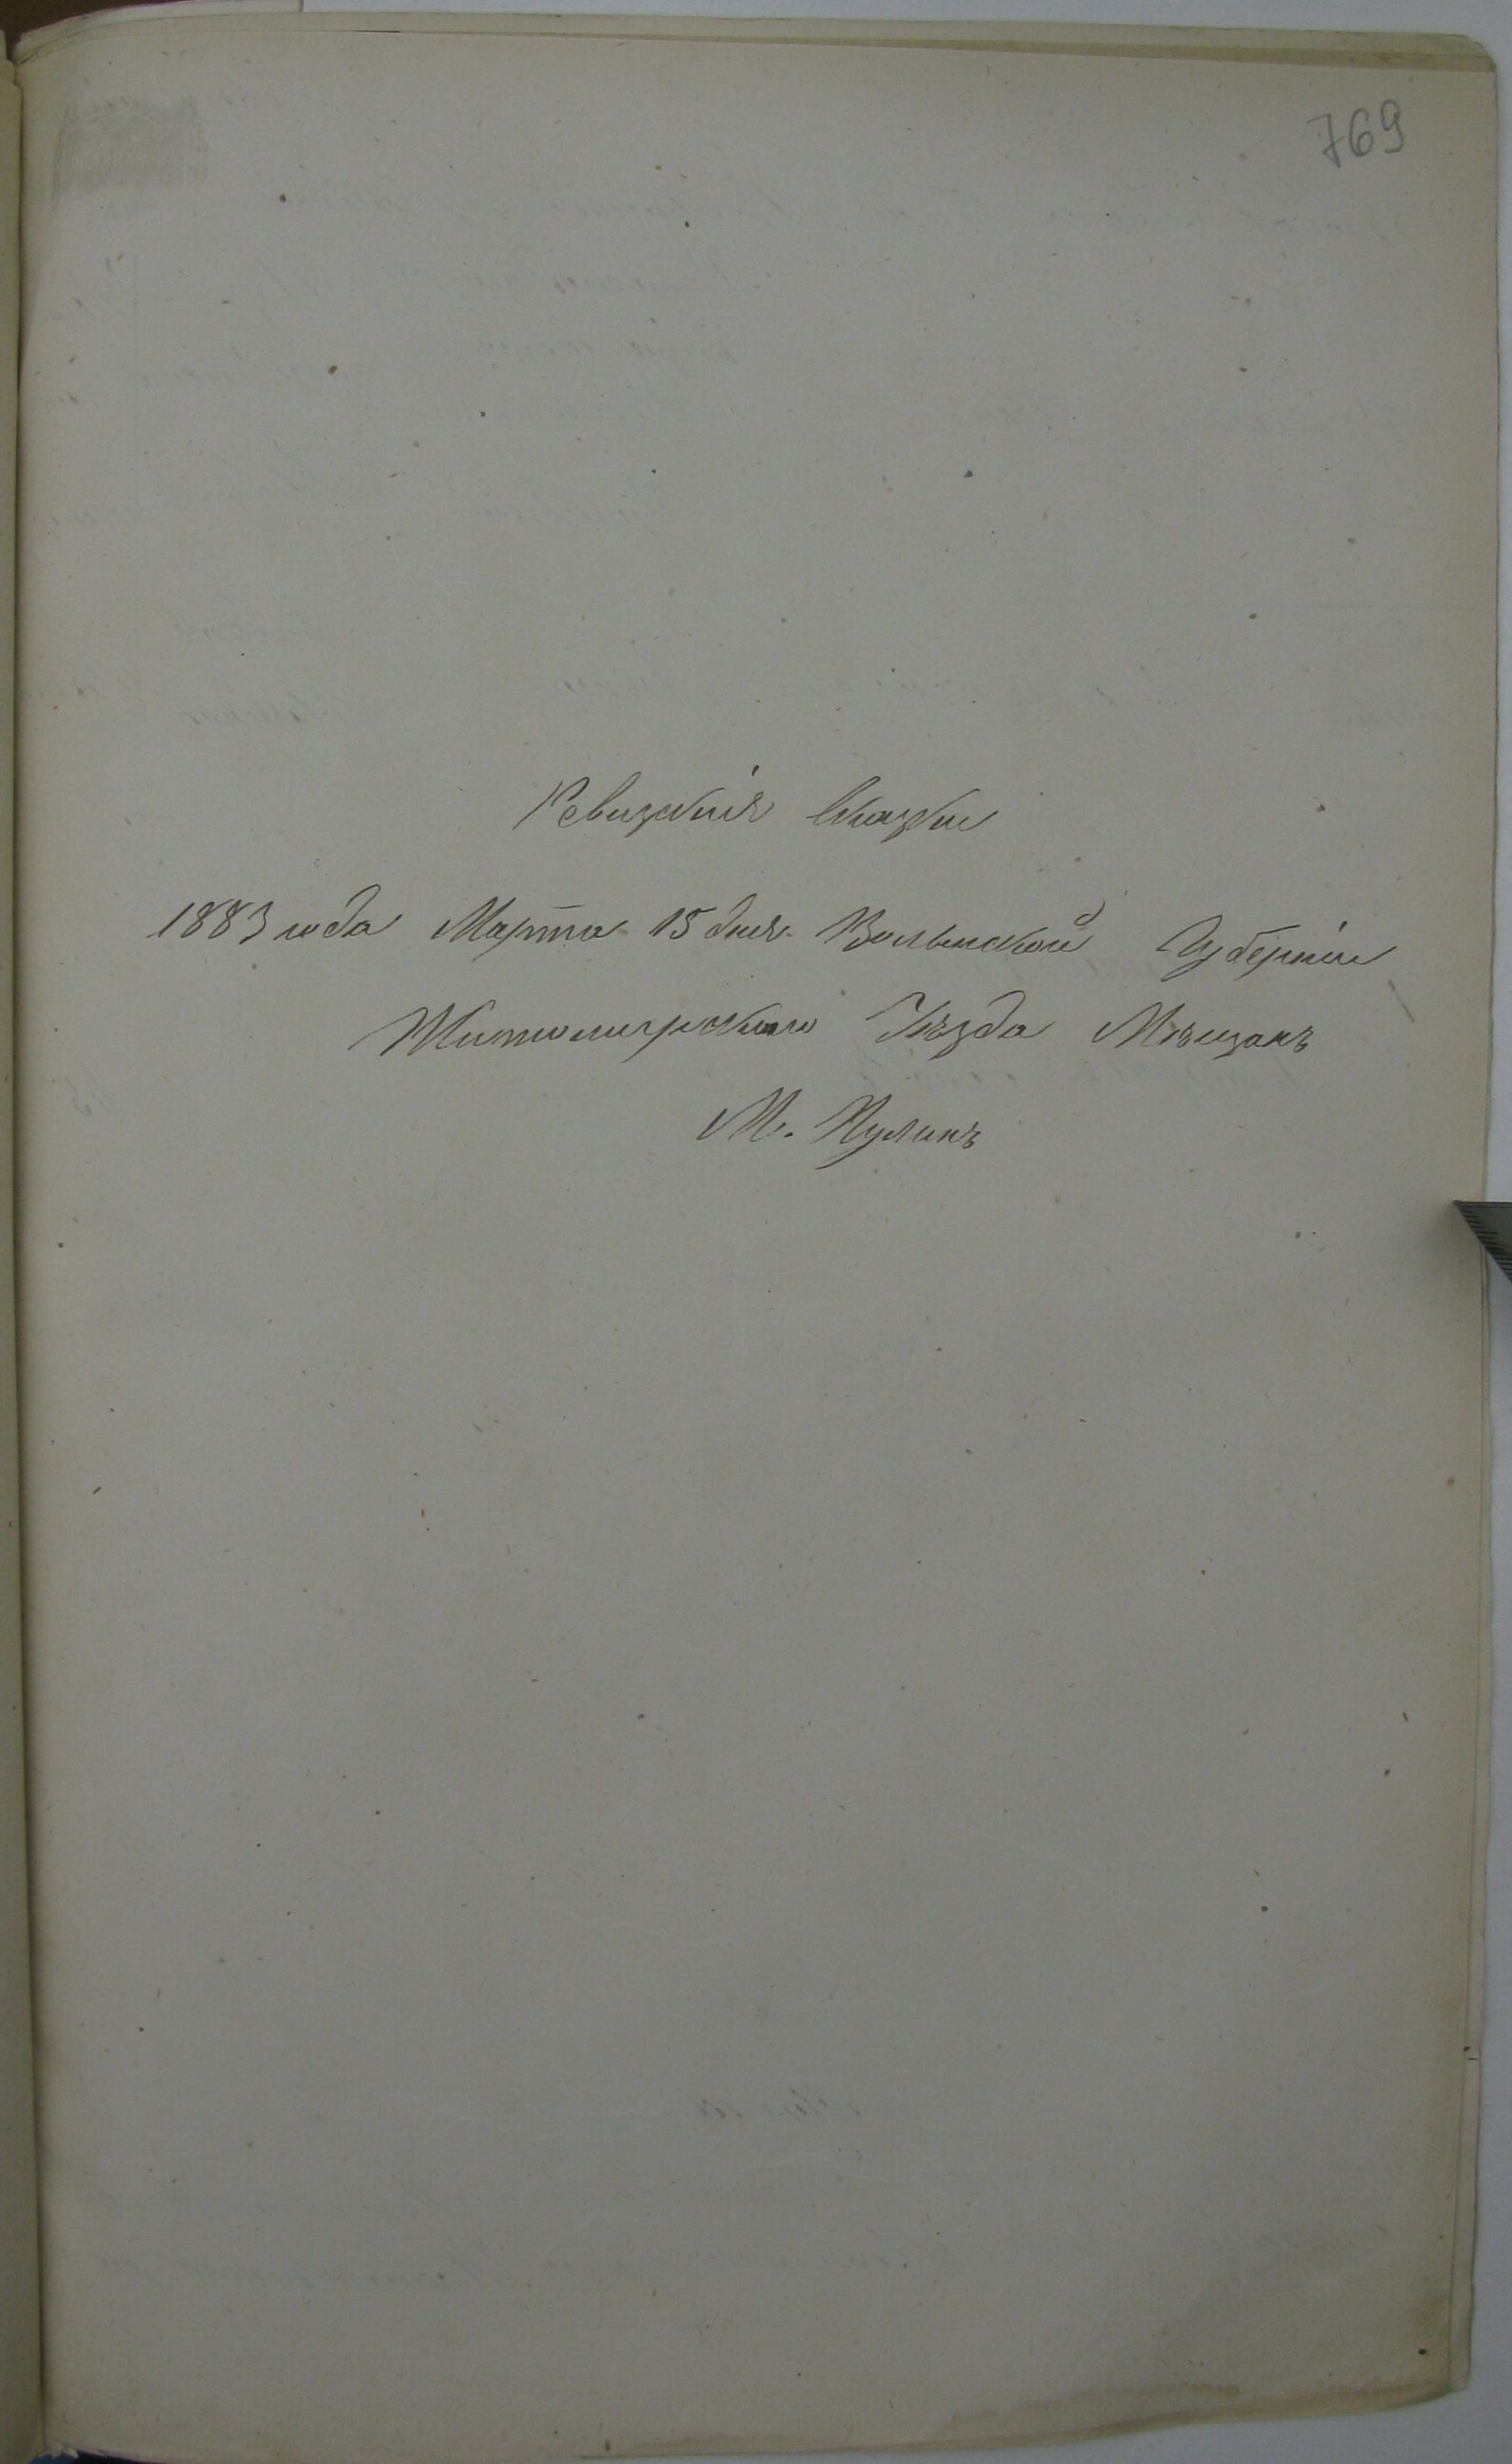 769
Ревизскія Сказки
1883 года Марта 15 дня Волынской Губерніи
Житомирскаго Уѣзда Мѣщанъ
М. Пулинъ